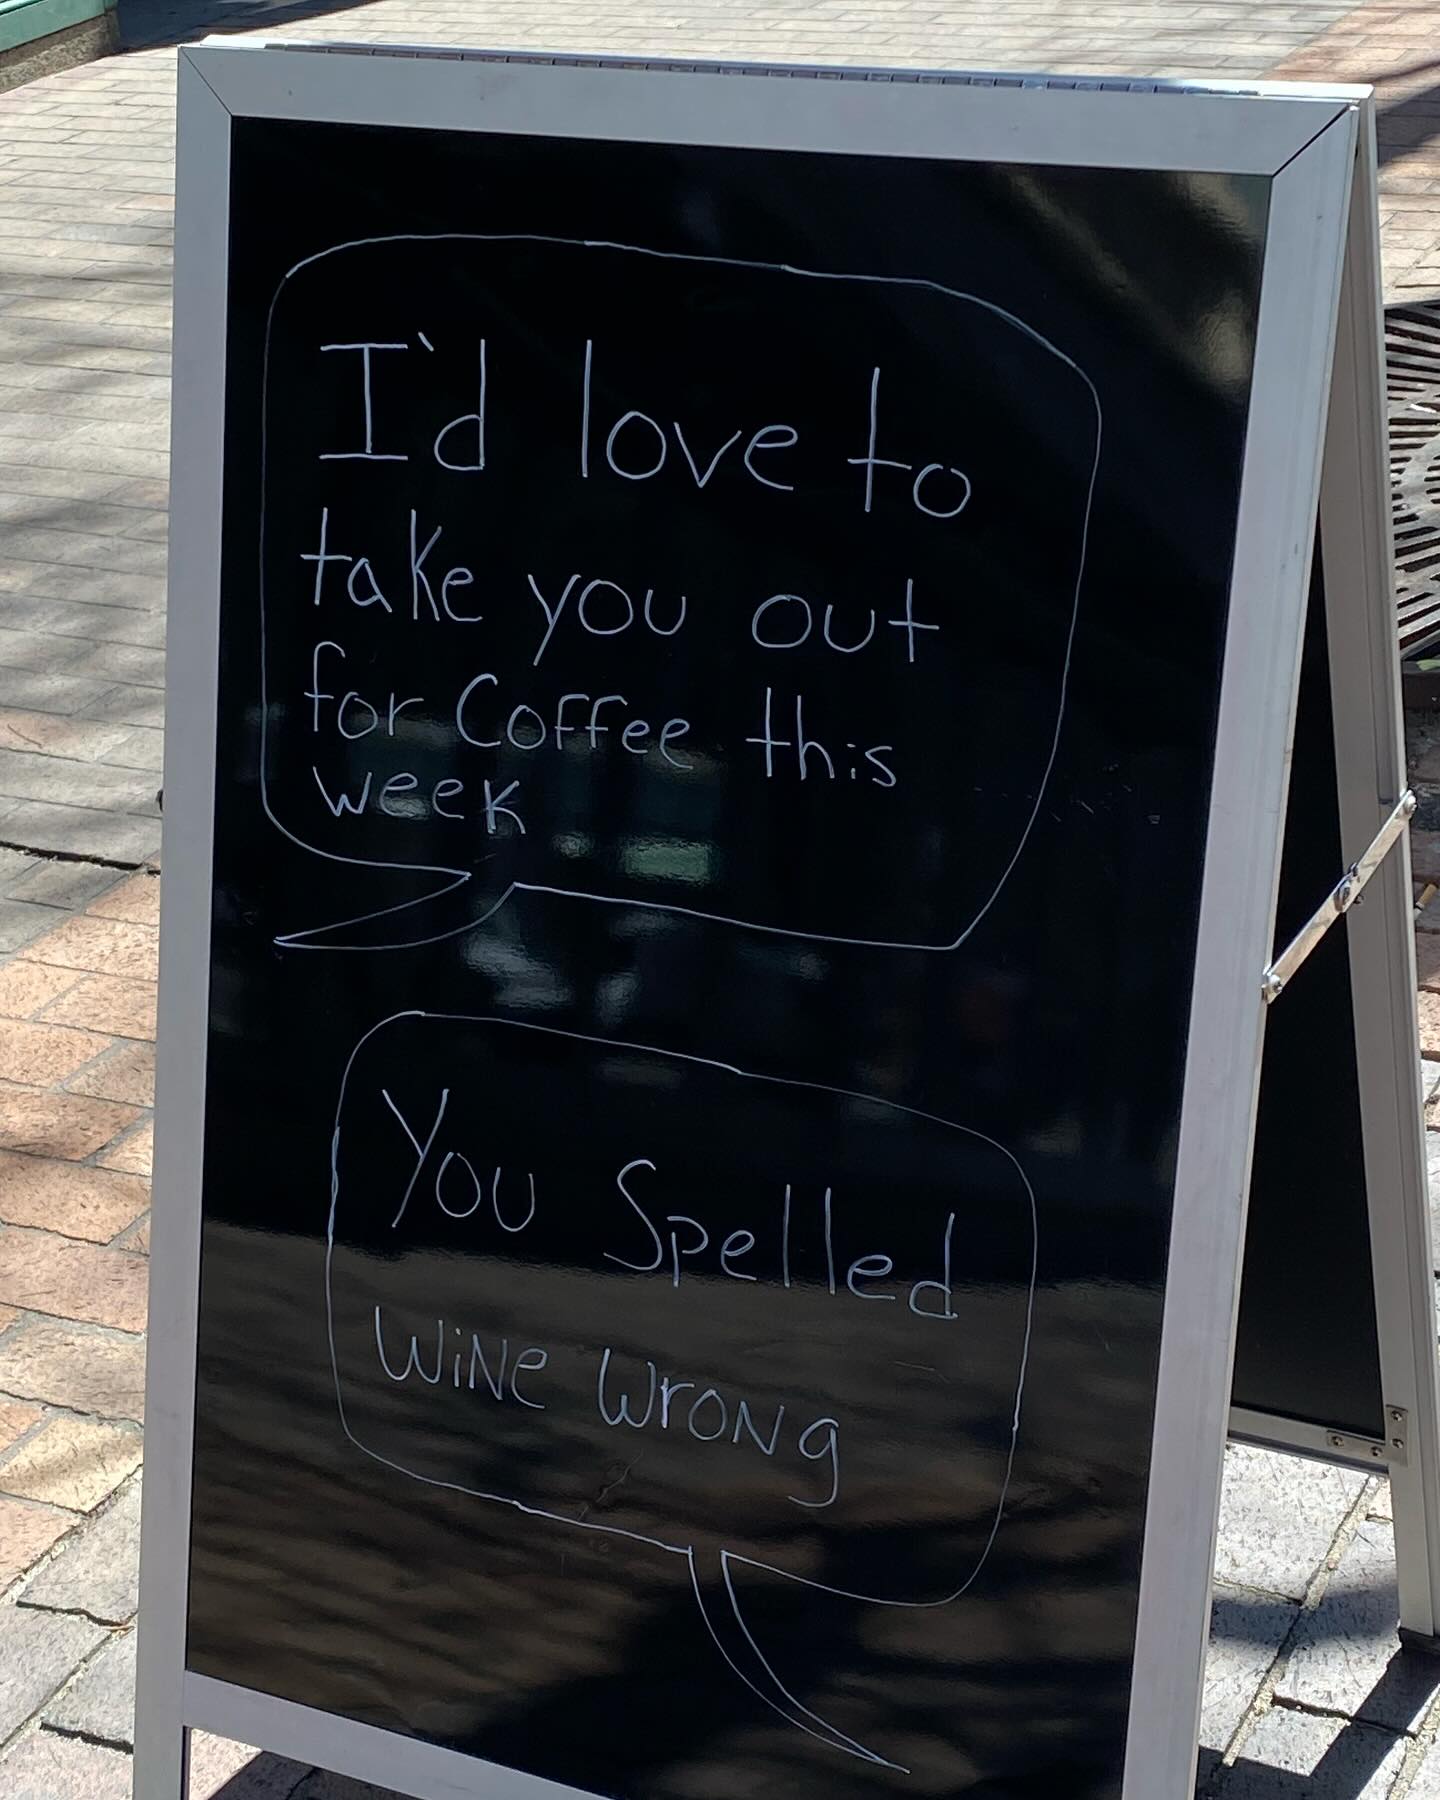 I'd love to
take you out
for Coffee this
week
You Spelled
WiNe WroNg